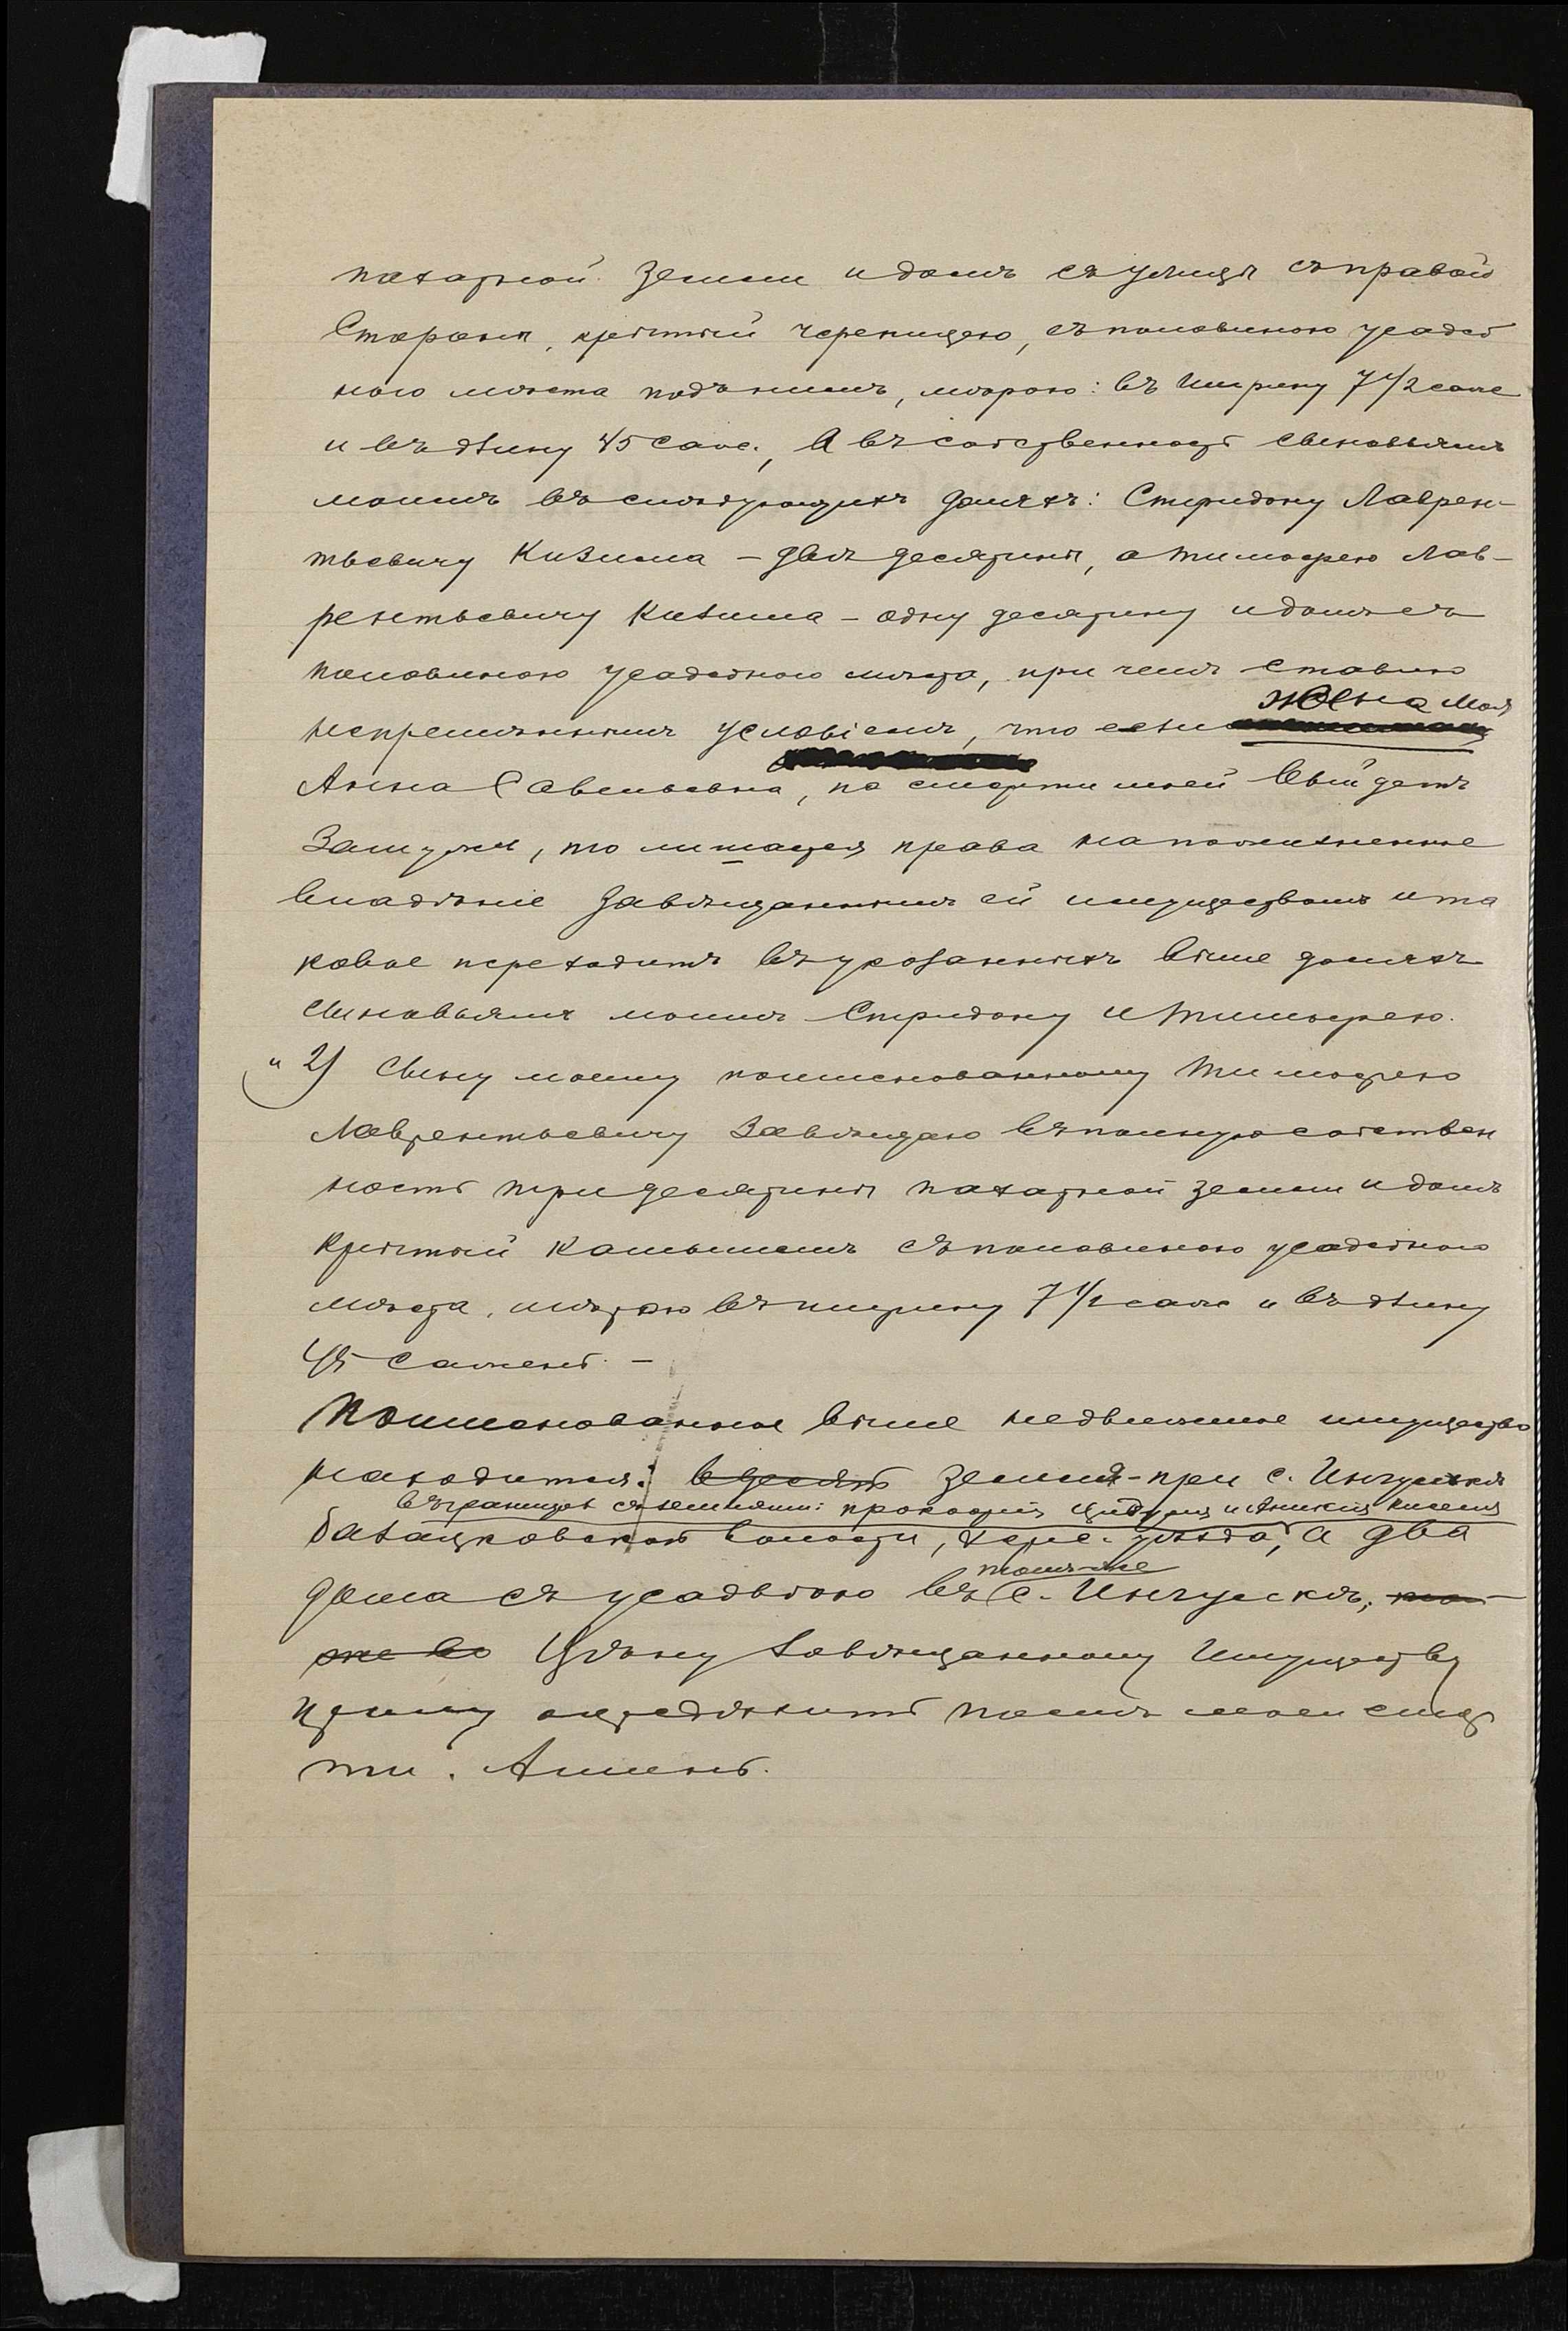 пахатной земли и домъ съ улицы съ правой
Стороны, крытый черепицею, съ половиною усадеб
наго мѣста подъ нимъ, мѣрою: въ ширину 7 1/2 саж
и въ длину 45 саж., А въ собственность сыновьямъ
моимъ въ слѣдующихъ доляхъ: Спиридону Лаврен-
тьевичу Кизима – двѣ десятины, а Тимофею Лав-
рентьевичу Кизима – одну десятину и домъ съ
половиною усадебного мѣста, при чемъ ставлю
жена моя
непремѣннымъ условіемъ, что если
Анна Савельевна, по смерти моей выйдетъ
Замужъ, то лишается права на пожизненное
владѣніе завѣщаннымъ ей имуществомъ и та
ковое переходитъ въ указанныхъ выше доляхъ
сыновьямъ моимъ Спиридону и Тимофею.
и 2) сыну моему поименованному Тимофею
Лаврентьевичу Завѣщаю въ полную собствен
ность три десятины пахатной земли и домъ
крытый камышемъ съ половиною усадебного
мѣста, мѣрою въ ширину 7 1/2 саж и въ длину
45 сажень. –
Поименованное выше недвижимое имущество
находится: земля - при с. Ингулкѣ
въ границѣ съ землями: Прокофія и
Баштанковской волости, Херс. уѣзда, а два
томъ-же
дома съ усадьбою въ с. Ингулкѣ, то
же во Цѣну Завѣщанному Имуществу
прошу опредѣлить послѣ моей смер
ти. Аминь.